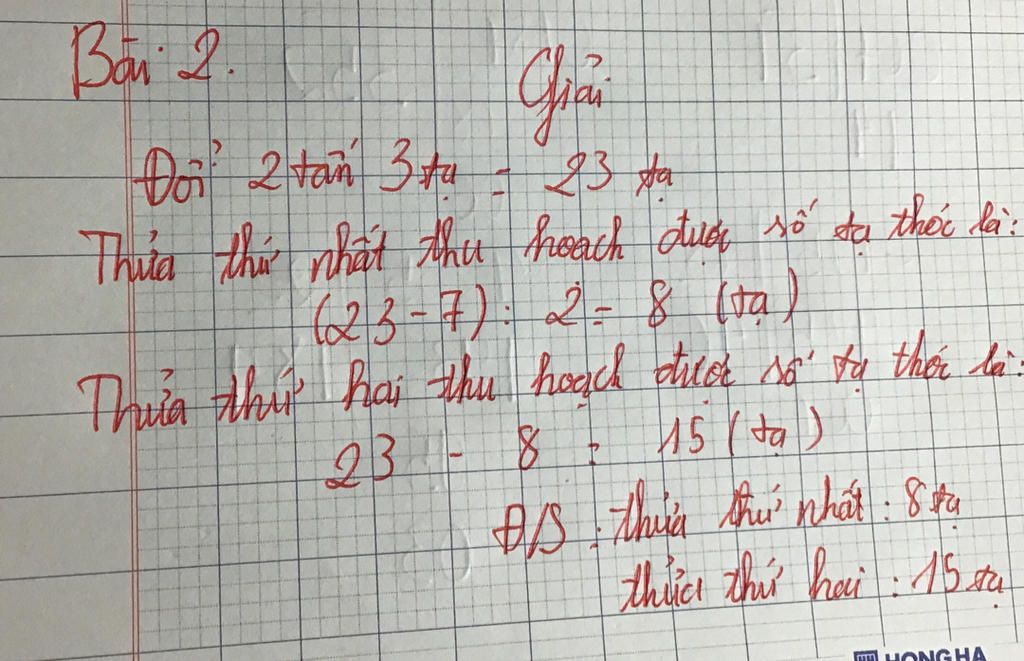 Bài 2.
Giải
Đổi 2 tấn 3 tạ = 23 tạ
Thửa thứ nhất thu hoạch được số tạ thóc là:
(23 - 7) : 2 = 8 (tạ)
Thửa thứ hai thu hoạch được số tạ thóc là:
23 - 8 = 15 (tạ)
Đ/S : thửa thứ nhất : 8 tạ
thửa thứ hai : 15 tạ
HONG HA